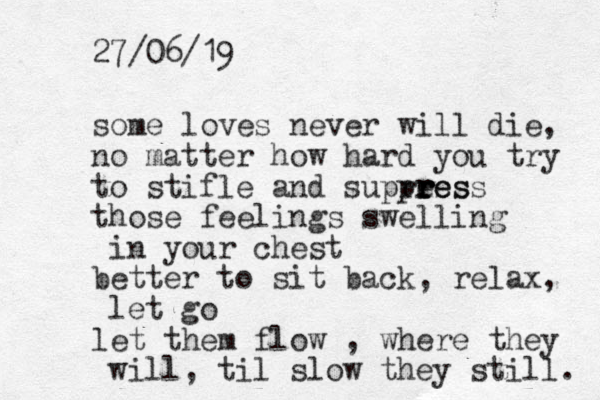 27/06/19
some loves never will die,
no matter how hard you try
to stifle and suppress
those feelings swelling
in your chest
better to sit back, relax,
let go
let them flow , where they
will, til slow they still.